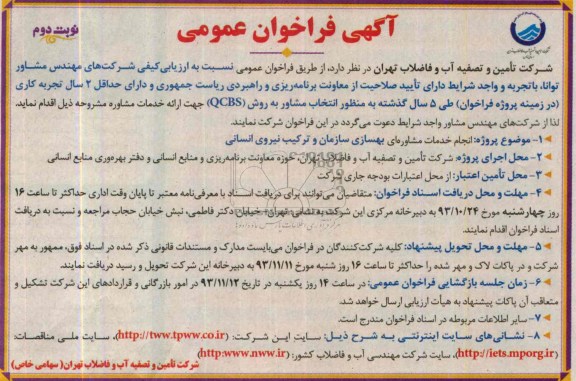 آگهی فراخوان عمومی
نوبت دوم
شرکت تأمین و تصفیه آب و فاضلاب تهران در نظر دارد، از طریق فراخوان عمومی نسبت به ارزیابی کیفی شرکت‌های مهندس مشاور
توانا، با تجربه و واجد شرایط دارای تأیید صلاحیت از معاونت برنامه‌ریزی و راهبردی ریاست جمهوری و دارای حداقل ۲ سال تجربه کاری
(در زمینه پروژه فراخوان) طی ۵ سال گذشته به منظور انتخاب مشاور به روش (QCBS) جهت ارائه خدمات مشاوره مشروحه ذیل اقدام نماید.
لذا از شرکت‌های مهندس مشاور واجد شرایط دعوت می‌گردد در این فراخوان شرکت نمایند.
۱- موضوع پروژه: انجام خدمات مشاوره‌ای بهسازی سازمان و ترکیب نیروی انسانی
۲- محل اجرای پروژه: شرکت تأمین و تصفیه آب و فاضلاب تهران، حوزه معاونت برنامه‌ریزی و منابع انسانی و دفتر بهره‌وری منابع انسانی
۳- محل تأمین اعتبار: از محل اعتبارات بودجه جاری شرکت
۴- مهلت و محل دریافت اسناد فراخوان: متقاضیان می‌توانند برای دریافت اسناد با معرفی‌نامه معتبر تا پایان وقت اداری حداکثر تا ساعت ۱۶
روز چهارشنبه مورخ ۹۳/۱۰/۲۴ به دبیرخانه مرکزی این شرکت به نشانی تهران- خیابان دکتر فاطمی، نبش خیابان حجاب مراجعه و نسبت به دریافت
اسناد فراخوان اقدام نمایند.
۵- مهلت و محل تحویل پیشنهاد: کلیه شرکت‌کنندگان در فراخوان می‌بایست مدارک و مستندات قانونی ذکر شده در اسناد فوق، ممهور به مهر
شرکت و در پاکات لاک و مهر شده را حداکثر تا ساعت ۱۶ روز شنبه مورخ ۹۳/۱۱/۱۱ به دبیرخانه این شرکت تحویل و رسید دریافت نمایند.
۶- زمان جلسه بازگشایی فراخوان عمومی: در ساعت ۱۴ روز یکشنبه در تاریخ ۹۳/۱۱/۱۲ در امور بازرگانی و قراردادهای این شرکت تشکیل و
متعاقب آن پاکات پیشنهاد به هیأت ارزیابی ارسال خواهد شد.
۷- سایر اطلاعات مربوطه در اسناد فراخوان مندرج است.
۸- نشانی‌های سایت اینترنتی به شرح ذیل: سایت این شرکت: (http://tww.tpww.co.ir)، سایت ملی مناقصات:
(http://iets.mporg.ir)، سایت شرکت مهندسی آب و فاضلاب کشور: (http:www.nww.ir)
شرکت تأمین و تصفیه آب و فاضلاب تهران (سهامی خاص)